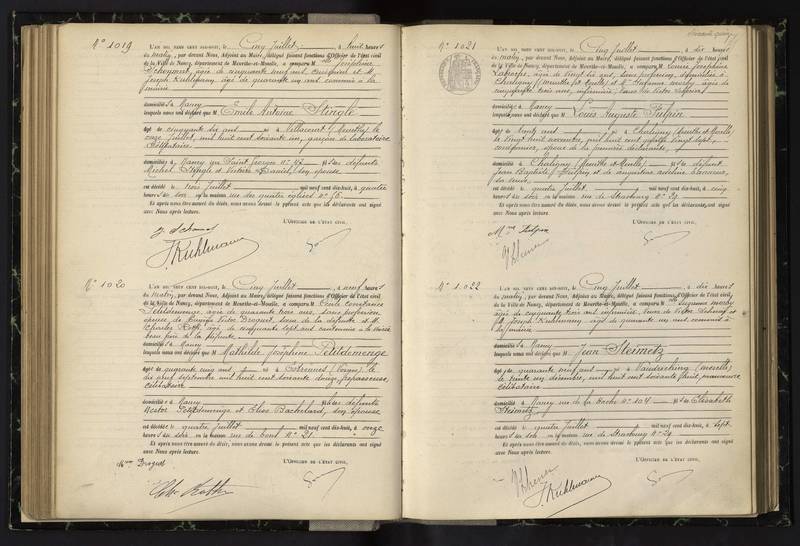 N° 1019
L'AN MIL NEUF CENT DIX-HUIT, le Cinq Juillet, à huit heures
du matin, par devant Nous, Adjoint au Maire, délégué faisant fonctions d'Officier de l'état civil
de la Ville de Nancy, département de Meurthe-et-Moselle, a comparu M Joséphine
âgée de cinquante neuf ans et M.
Joseph Kuhlmann, âgé de quarante un ans commis à la
mairie
domiciliés à Nancy
lesquels nous ont déclaré que M Emile Antoine Stingle
âgé de cinquante six ans né à Villacourt (Meurthe) le
onze Juillet, mil huit cent soixante un, garçon de laboratoire
Célibataire
domicilié à Nancy rue Saint Georges N° 47 fils des défunts
Michel Stingle et Victoire Daniel, son épouse
est décédé le trois Juillet mil neuf cent dix-huit, à quatre
heures du soir en la maison rue des quatre églises N° 56.
Et après nous être assuré du décès, nous avons dressé le présent acte que les déclarants ont signé
avec Nous après lecture.
L'OFFICIER DE L'ÉTAT CIVIL,
J. Kuhlmann
N° 1020
L'AN MIL NEUF CENT DIX-HUIT, le Cinq Juillet, à neuf heures
du matin, par devant Nous, Adjoint au Maire, délégué faisant fonctions d'Officier de l'état civil
de la Ville de Nancy, département de Meurthe-et-Moselle, a comparu M Cécile Constance
Petitdemenge, âgée de quarante trois ans, sans profession
veuve de Victor Droguet, soeur de la défunte et M.
Charles Roth, âgé de cinquante sept ans
beau frère de la défunte
domiciliés à Nancy
lesquels nous ont déclaré que M Mathilde Joséphine Petitdemenge
âgée de quarante cinq ans née à (Vosges) le
dix neuf septembre mil huit cent soixante douze, repasseuse,
célibataire
domiciliée à Nancy fille des défunts
Nestor Petitdemenge et Elise Bachelard, son épouse
est décédée le quatre Juillet mil neuf cent dix-huit, à onze
heures du soir en la maison rue de N° 21.
Et après nous être assuré du décès, nous avons dressé le présent acte que les déclarants ont signé
avec Nous après lecture.
L'OFFICIER DE L'ÉTAT CIVIL,
Mme Droguet
Roth
N° 1021
L'AN MIL NEUF CENT DIX-HUIT, le Cinq Juillet, à dix heures
du matin, par devant Nous, Adjoint au Maire, délégué faisant fonctions d'Officier de l'état civil
de la Ville de Nancy, département de Meurthe-et-Moselle, a comparu M Louise Joséphine
âgée de vingt six ans, sans profession, domiciliée à
Chaligny (Meurthe et Moselle) et M âgée de
cinquante trois ans, infirmière, veuve de Victor
domiciliée à Nancy
lesquels nous ont déclaré que M Louis Auguste Fulpin
âgé de trente ans né à Chaligny (Meurthe et Moselle)
le vingt huit novembre, mil huit cent quatre vingt sept,
cordonnier, époux de la première déclarante,
domicilié à Chaligny (Meurthe et Moselle) fils de défunt
Jean Baptiste Fulpin et de Augustine
sa veuve
est décédé le quatre Juillet mil neuf cent dix-huit, à cinq
heures du soir en la maison rue de Strasbourg N° 29
Et après nous être assuré du décès, nous avons dressé le présent acte que les déclarants ont signé
avec Nous après lecture.
L'OFFICIER DE L'ÉTAT CIVIL,
Mme Fulpin
N° 1022
L'AN MIL NEUF CENT DIX-HUIT, le Cinq Juillet, à dix heures
du matin, par devant Nous, Adjoint au Maire, délégué faisant fonctions d'Officier de l'état civil
de la Ville de Nancy, département de Meurthe-et-Moselle, a comparu M
âgée de cinquante trois ans infirmière, veuve de Victor
et M. Joseph Kuhlmann, âgé de quarante un ans commis à
la mairie
domiciliés à Nancy
lesquels nous ont déclaré que M Jean Steimetz
âgé de quarante neuf ans né à (Moselle)
le trente un décembre, mil huit cent soixante huit, manoeuvre
célibataire
domicilié à Nancy rue de la Hache N° 104 fils de Elisabeth
Steimetz
est décédé le quatre Juillet mil neuf cent dix-huit, à sept
heures du soir en la maison rue de Strasbourg N° 29
Et après nous être assuré du décès, nous avons dressé le présent acte que les déclarants ont signé
avec Nous après lecture.
L'OFFICIER DE L'ÉTAT CIVIL,
J. Kuhlmann